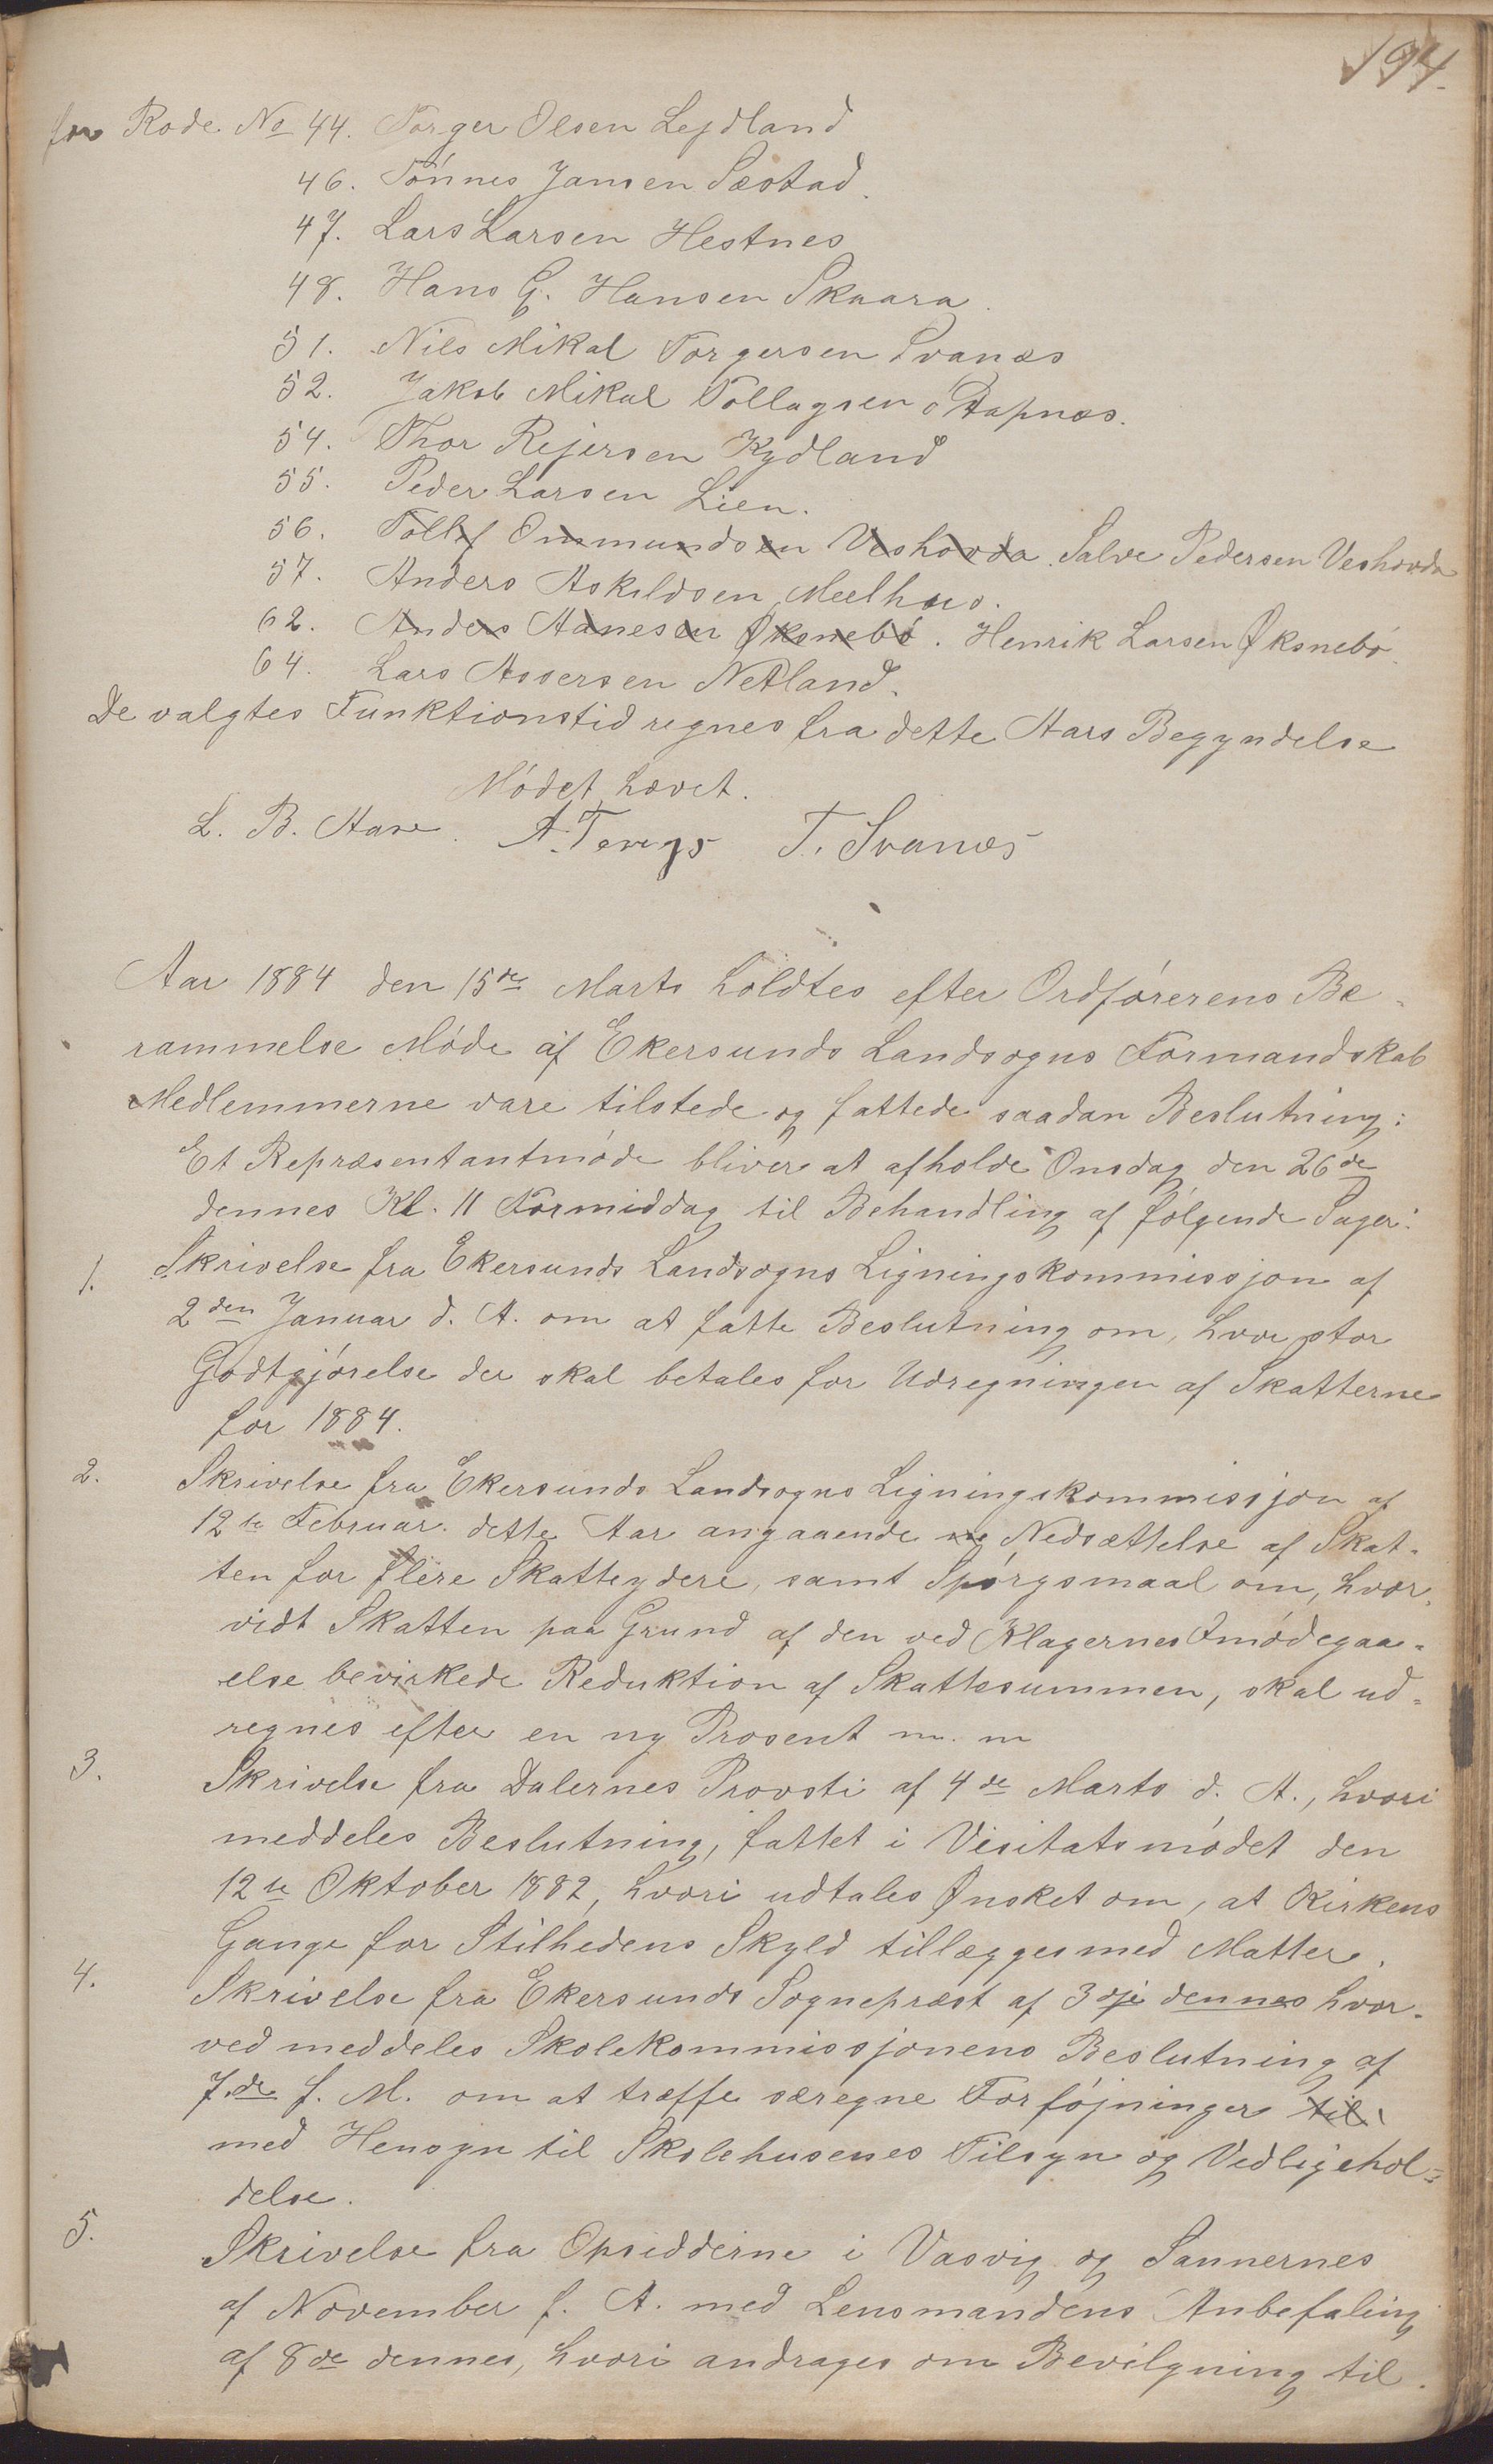 194.
for Rode No 44. Torger Olsen Lejdland
46. Tönnes Jansen Sæstad.
47. Lars Larsen Hestnes
48. Hans G. Hansen Skaara.
51. Nils Mikal Torgersen Svanæs
52. Jakob Mikal Tollagsen
54. Thor Rejersen Kydland
55. Peder Larsen Lien.
56. Tollef Ommundsen Veshovda. Salve Pedersen Veshovda
57. Anders Askildsen Meelhus.
62. Anders Aanesen Øksnebö. Henrik Larsen Øksnebö.
64. Lars Assersen Netland.
De valgtes Funktionstid regnes fra dette Aars Begyndelse
Mödet hævet.
L. B. Aase. A. Tengs T. Svanæs
Aar 1884 den 15de Marts holdtes efter Ordförerens Be-
rammelse Möde af Ekersunds Landsogns Formandskab
Medlemmerne vare tilstede og fattede saadan Beslutning:
Et Repræsentantmöde bliver at afholde Onsdag den 26de
dennes Kl. 11 Formiddag til Behandling af fölgende Sager:
1. Skrivelse fra Ekersunds Landsogns Ligningskommissjon af
2den Januar d. A. om at fatte Beslutning om, hvor stor
Godtgjörelse der skal betales for Udregningen af Skatterne
for 1884.
2. Skrivelse fra Ekersunds Landsogns Ligningskommissjon af
12te Februar dette Aar angaaende ne Nedsættelse af Skat-
ten for flere Skatteydere, samt Spörgsmaal om, hvor-
vidt Skatten paa Grund af den ved Klagernes Imödegaa-
else bevirkede Reduktion af Skattesummen, skal ud-
regnes efter en ny Prosent m. m
3. Skrivelse fra Dalernes Provsti af 4de Marts d. A., hvori
meddeles Beslutning, fattet i Visitatsmödet den
12te Oktober 1882, hvori udtales Ønsket om, at Kirkens
Gange for Stilhedens Skyld tillægges med Matter.
4. Skrivelse fra Ekersunds Sognepræst af 3dje dennes hvor-
ved meddeles Skolekommissjonens Beslutning af
7.de f. M. om at træffe særegne Forföjninger til
med Hensyn til Skolehusenes Tilsyn og Vedligehol-
delse.
5. Skrivelse fra Opsidderne i Vasvig og Sannernes
af November f. A. med Lensmandens Anbefaling
af 8de dennes, hvori andrages om Bevilgning til